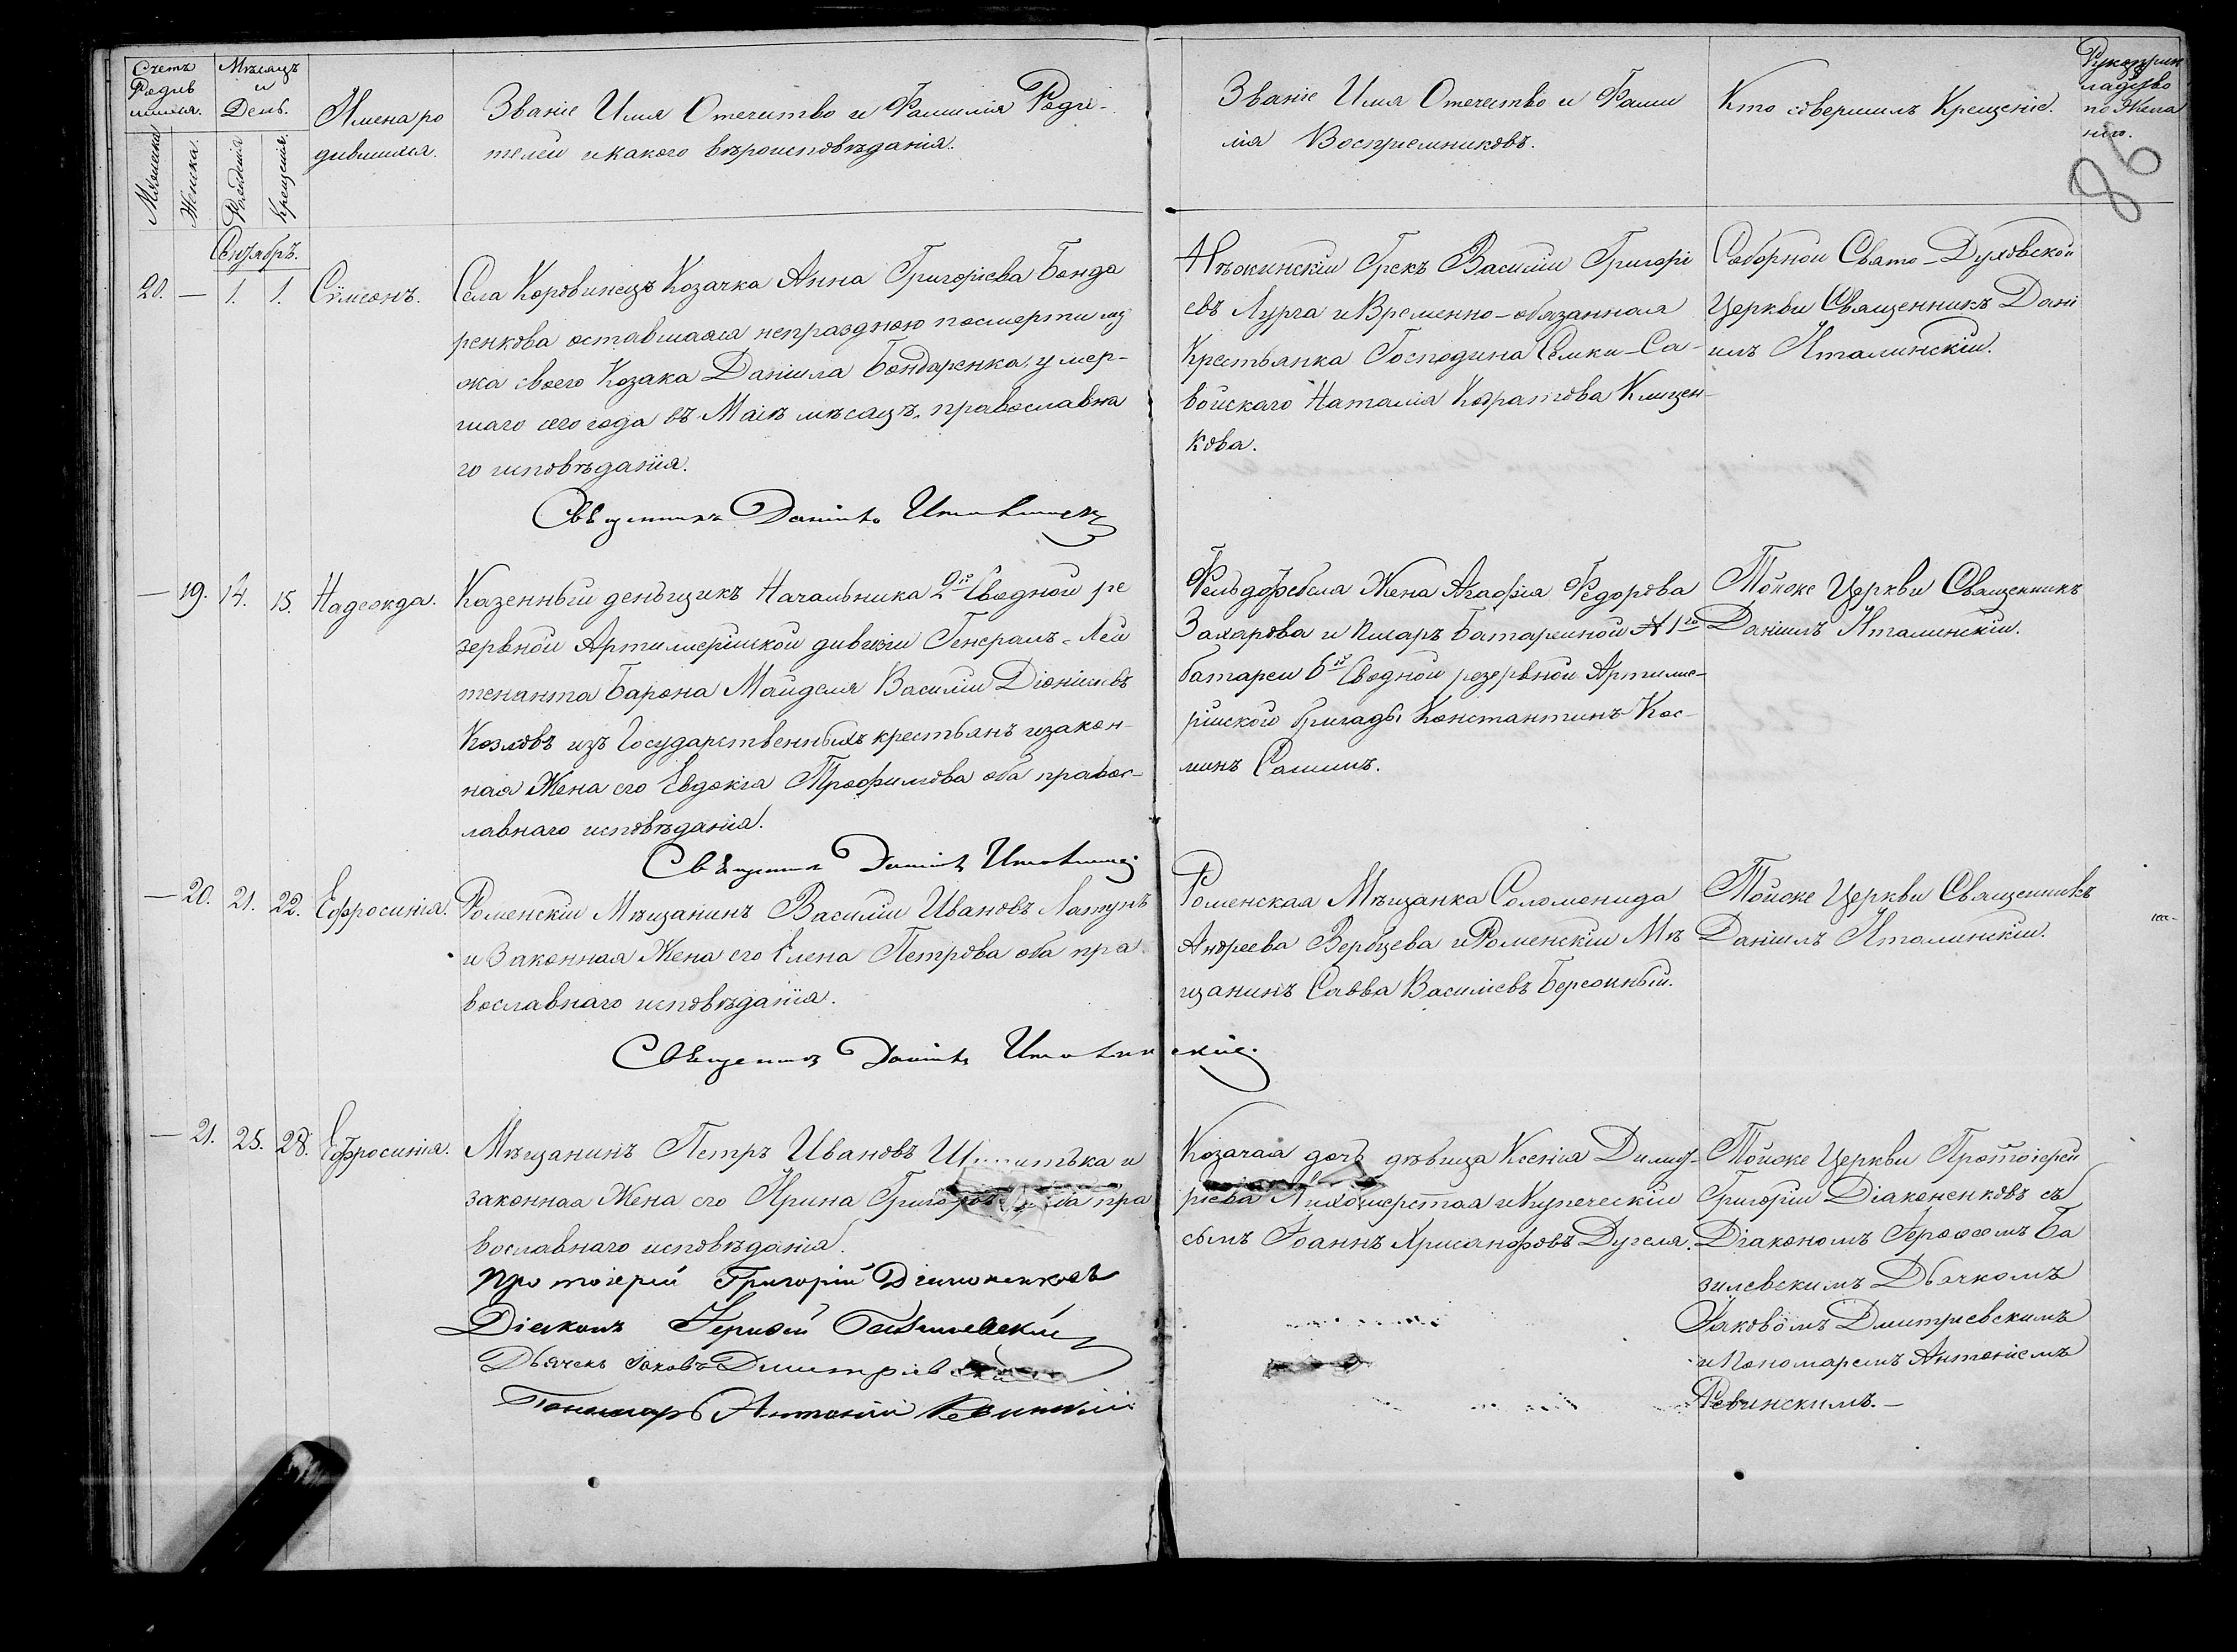 Счетъ
Родив
шихся.
Мѣсяцъ
и
День.
Мужеска
Женска.
Рожденія
Крещенія.
Имена ро
дившихся.
Званіе Имя Отечество и Фамилія Роди-
телей и какого вѣроисповѣданія.
Званіе Имя Отечество и Фами
лія Воспріемниковъ.
Кто совершилъ Крещеніе.
Рукоприк
ладство
по Жела
нію.
86
Сентябрь.
20. — 1. 1. Сімеонъ.
Села Коровинецъ Козачка Анна Григоріева Бонда
ренкова оставшаяся непраздною посмерти му
жа своего Козака Даніила Бондаренка, умер-
шаго сего года въ Маіѣ мѣсацѣ, православна
го исповѣданія.
Священникъ Даніилъ Италинскій
Нѣжинскій Грекъ Василій Григорі
евъ Лурга и Временно-обязанная
Крестьянка Господина Семки-Са-
войскаго Наталія Каратова Клицен-
кова.
Соборной Свято-Духовской
Церкви Священникъ Дані
илъ Италинскій.
— 19. 14. 15. Надежда.
Казенный деньщикъ Начальника 2й Сводной ре
зервной Артиллерійской дивизіи Генералъ-Лей
тенанта Барона Майделя Василій Діонисіевъ
Козловъ изъ Государственныхъ крестьянъ изакон-
ная Жена его Евдокія Трофимова оба правос-
лавнаго исповѣданія.
Священникъ Даніилъ Италинскій
Фельдфебеля Жена Агафія Федорова
Захарова и писарь Батарейной № 1й
батареи 6й Сводной резервной Артилле-
рійской бригады Константинъ Кос-
минъ Сашинъ.
Тойже Церкви Священникъ
Даніилъ Италинскій.
— 20. 21. 22. Ефросинія.
Роменскій Мѣщанинъ Василій Ивановъ Латунъ
и Законная Жена его Елена Петрова оба пра
вославнаго исповѣданія.
Священникъ Даніилъ Италинскій.
Роменская Мѣщанка Соломонида
Андреева Вербцева и Роменскій Мѣ
щанинъ Савва Василіевъ Бережный.
Тойже Церкви Священникъ
Даніилъ Италинскій.
— 21. 25. 28. Ефросинія.
Мѣщанинъ Петръ Ивановъ и
законная Жена его Ирина оба пра
вославнаго исповѣданія.
Протоіерей Григорій Діаконенковъ
Діаконъ Герасій Базилевскій
Дьячекъ Іаковъ Дмитріевскій
Пономарь Антоній Ревинскій
Козачая дочь дѣвица Ксенія Димит-
ріева Лихошерстая и Купеческій
сынъ Іоаннъ Хрисанфовъ Дугеля.
Тойже Церкви Протоіерей
Григорій Діаконенковъ съ
Діакономъ Ба
зилевскимъ Дьячкомъ
Іаковомъ Дмитріевскимъ
и Пономаремъ Антоніемъ
Ревинскимъ.—